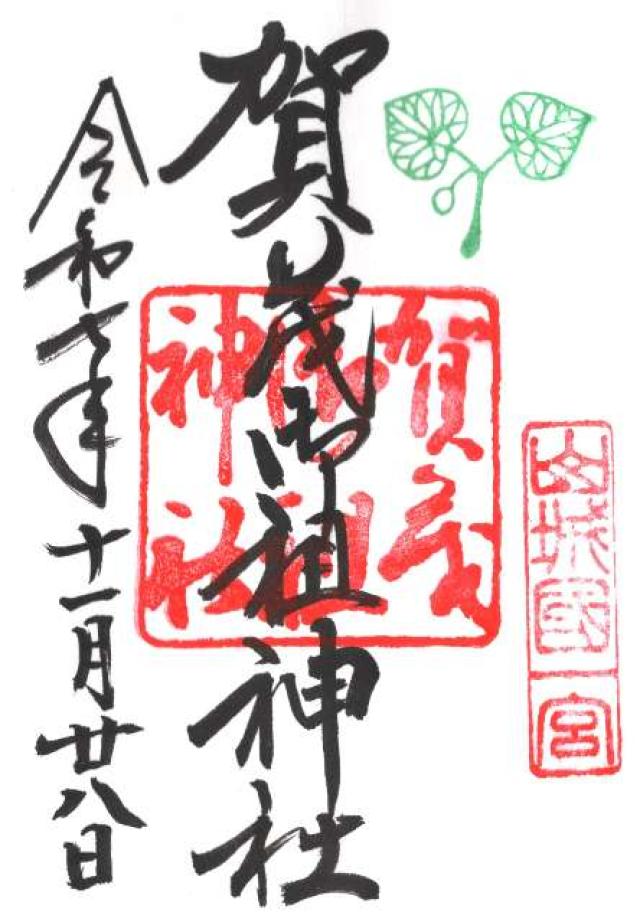 山城國一宮
賀茂御祖神社
賀茂御祖神社
令和七年十一月廿八日